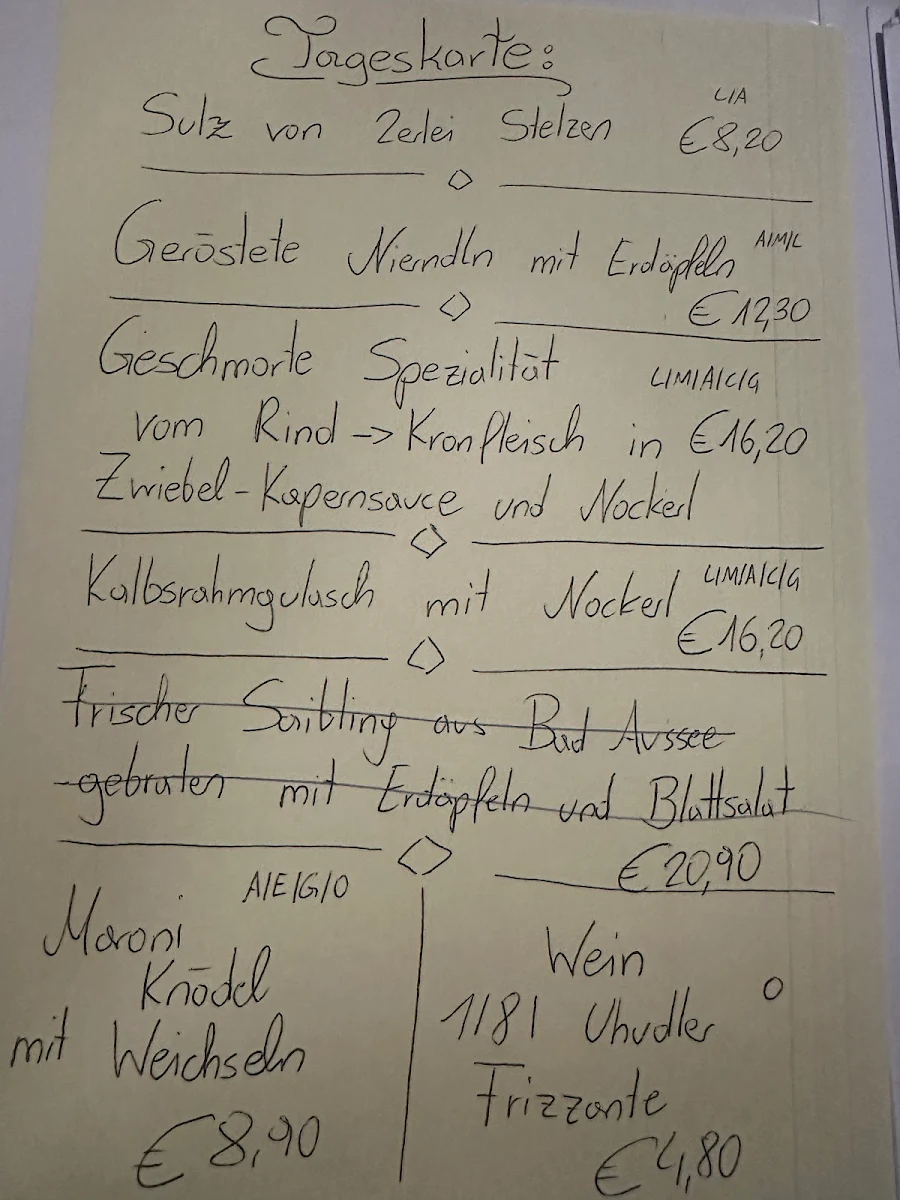 Tageskarte:
L/A
Sulz von 2erlei Stelzen €8,20
Geröstete Nierndln mit Erdäpfeln A/M/L
€12,30
Geschmorte Spezialität L/M/A/C/G
vom Rind -> Kronfleisch in €16,20
Zwiebel-Kapernsauce und Nockerl
Kalbsrahmgulasch mit Nockerl L/M/A/C/G
€16,20
Frischer Saibling aus Bad Aussee
gebraten mit Erdäpfeln und Blattsalat
€20,90
A/E/G/O
Maroni
Knödel
mit Weichseln
€8,90
Wein
O
1/8l Uhudler
Frizzante
€4,80